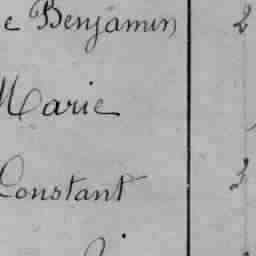 e Benjamin 2
Marie
Constant 3